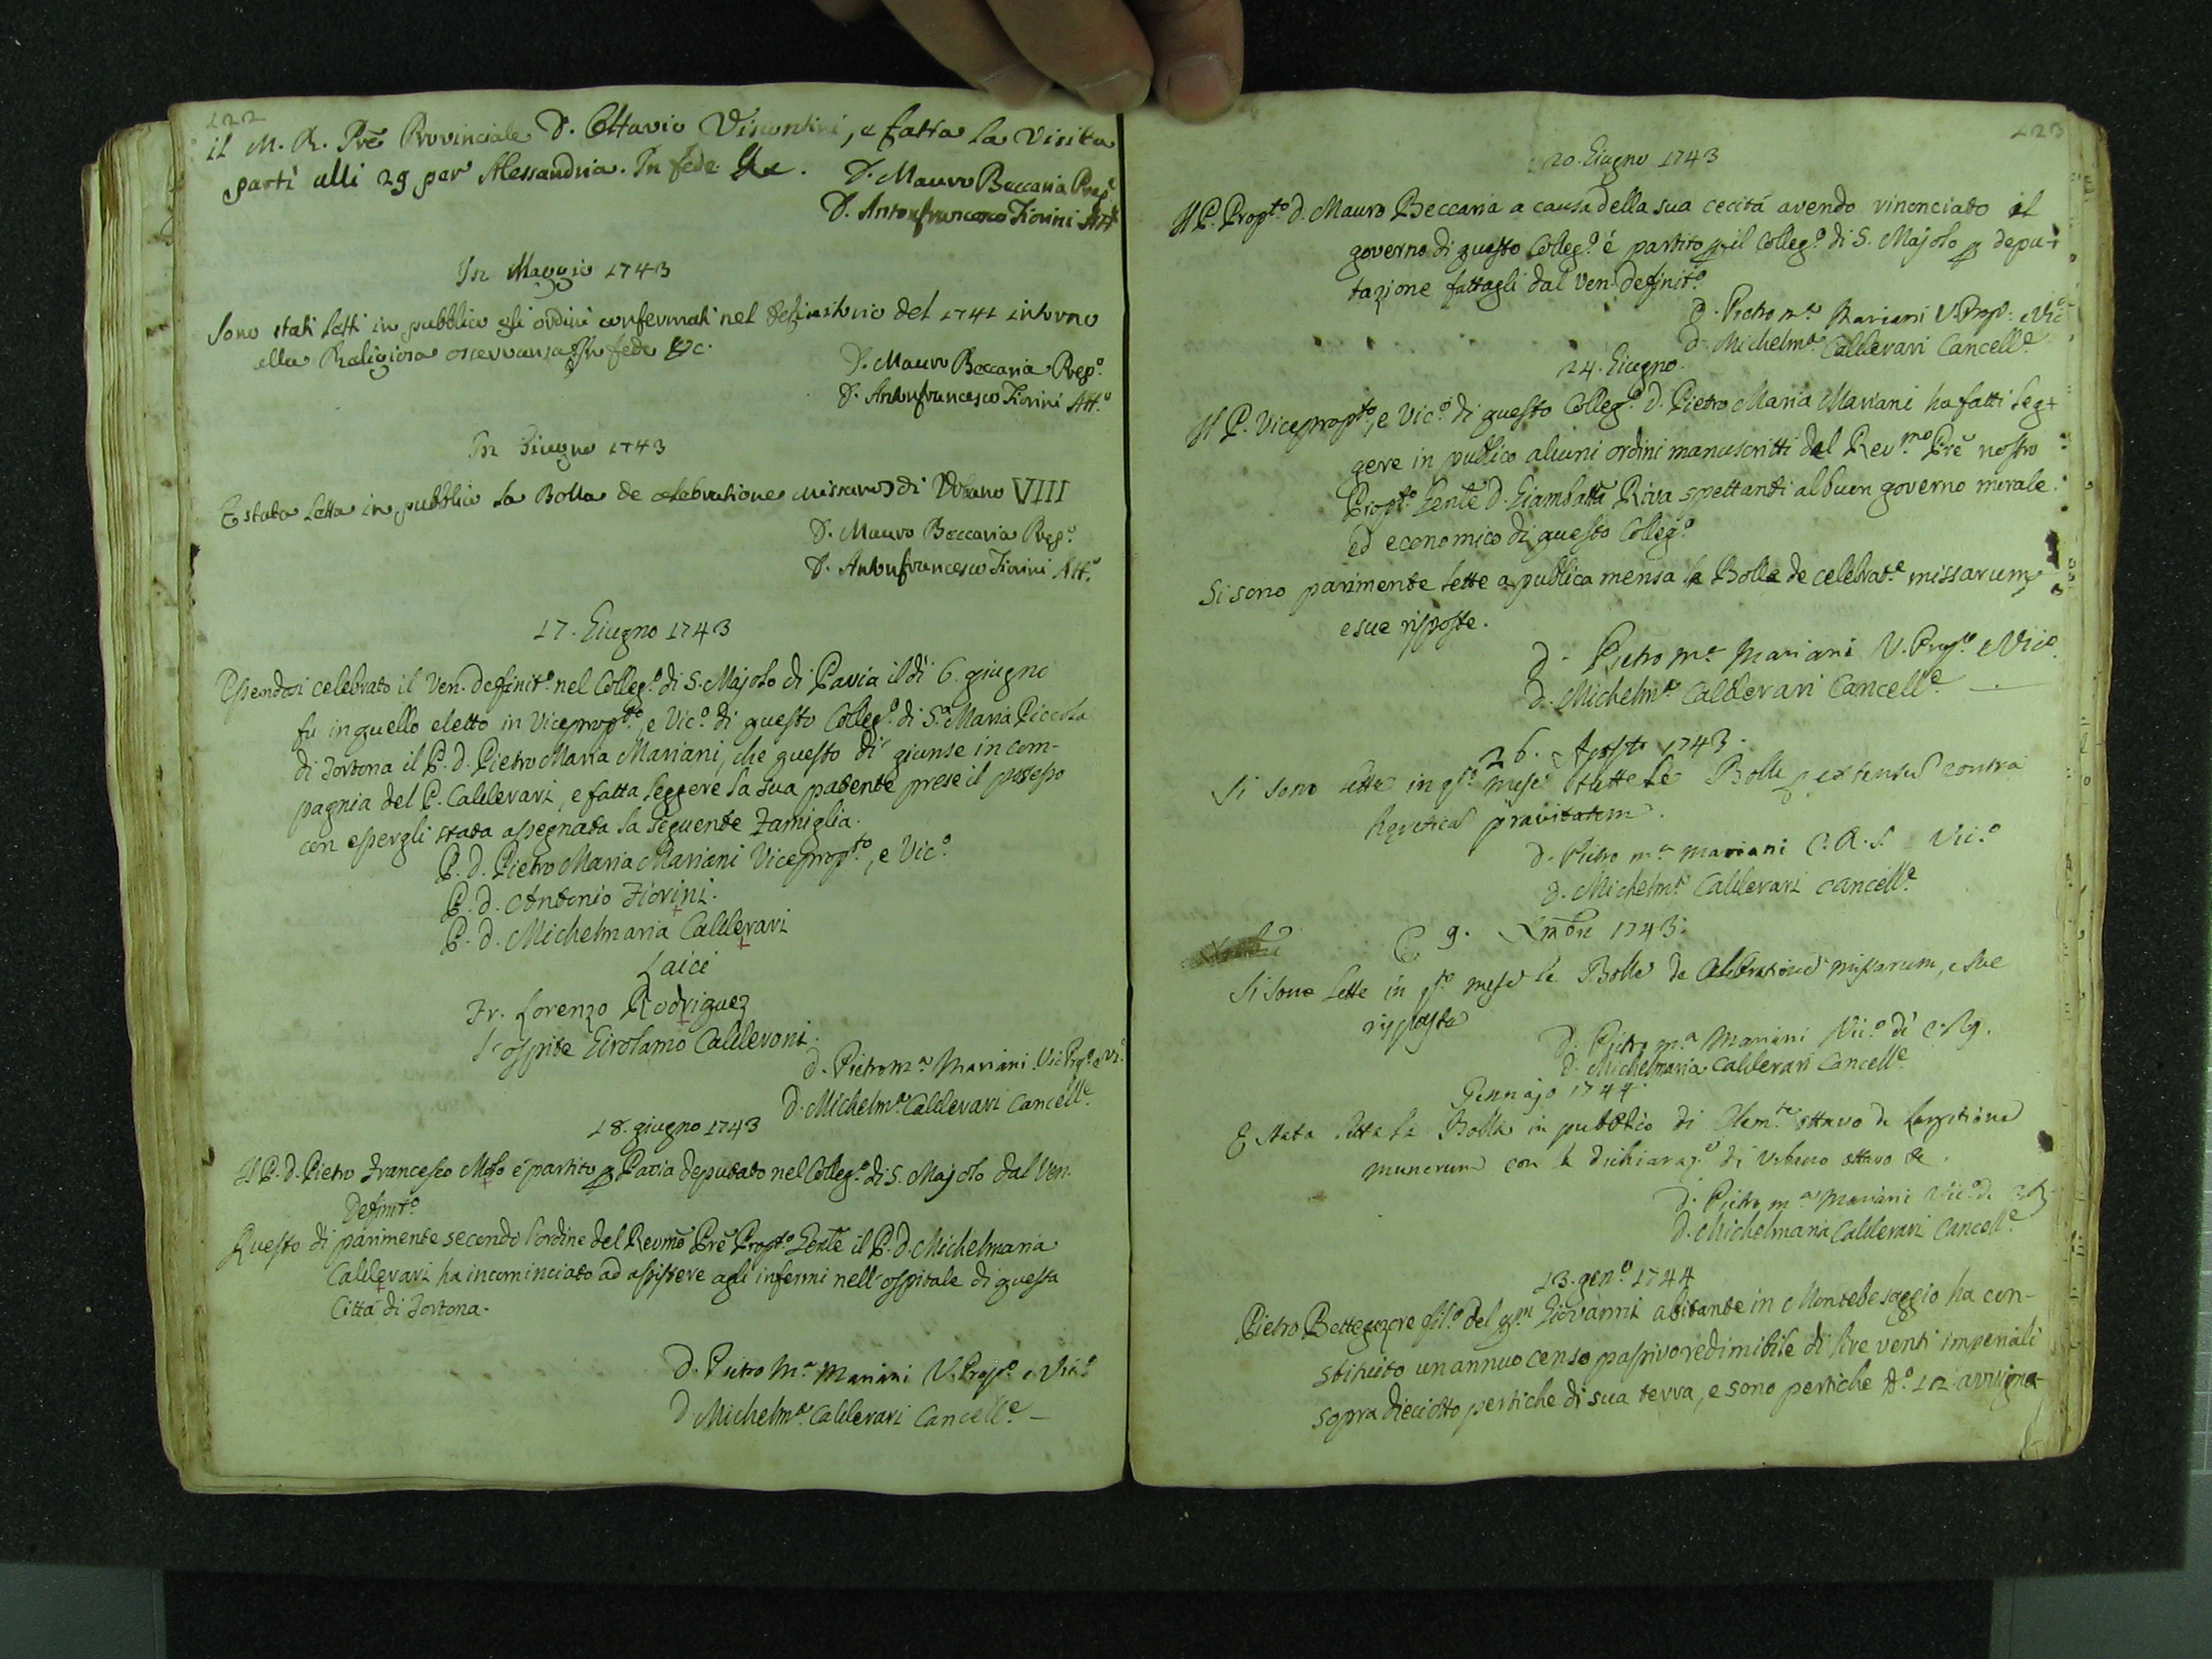 122
il M. R. Prē Provinciale D. Ottavio Viscontini, e fatta la visita
partì alli 29 per Alessandria. In fede &c.
D. Mauro Beccaria Prepº
D. Antonfrancesco Fiorini Attº
In Maggio 1743
Sono stati letti in pubblico gli ordini confermati nel definitorio del 1741 intorno
alla Religiosa osservanza. In fede &c.
D. Mauro Beccaria Prepº.
D. Antonfrancesco Fiorini Att.º
In Giugno 1743
E stata letta in pubblico la Bolla de celebratione missarum di Urbano VIII
D. Mauro Beccaria Prepº.
D. Antonfrancesco Fiorini Att.º
17. Giugno 1743
Essendosi celebrato il Ven. Definitº. nel Collegº. di S. Majolo di Pavia il dì 6. giugno
fu in quello eletto in Vicepropto, e Vicº. di questo Collegº. di Sª. Maria Piccola
di Tortona il P. D. Pietro Maria Mariani, che questo dì giunse in com-
pagnia del P. Calderari, e fatta leggere la sua patente prese il possesso
con essergli stata assegnata la seguente Famiglia.
P. D. Pietro Maria Mariani Vicepropto, e Vicº.
P. D. Antonio Fiorini.
P. D. Michelmaria Calderari
Laici
Fr. Lorenzo Rodriguez
L'ospite Girolamo Calderoni.
D. Pietro Mª Mariani Vic Propº. e Vic
D. Michelmª. Calderari Cancelle.
18. giugno 1743
Il P. D. Pietro Francesco Molo é partito p Pavia deputato nel Collegº. di S. Majolo dal Ven.
Definitº
Questo dì parimente secondo l'ordine del Revmō Prē Proptº. Genle il P. D. Michelmaria
Calderari ha incominciato ad assistere agli infermi nell'ospitale di questa
Città di Tortona.
D. Pietro Mª Mariani V. Propº. e Vicº
D Michelmª. Calderari Cancelle. —
123
20. Giugno 1743
Il P. Proptº D. Mauro Beccaria a causa della sua cecità avendo rinonciato il
governo di questo Collegº. é partito p il Collegº. di S. Majolo p depu-
tazione fattagli dal Ven. Definitº.
D. Pietro mª Mariani V. Propº. e Vicº
D. Michelmª. Calderari Cancelle.
24. Giugno.
Il P. Vicepropto, e Vicº. di questo Collegº. D. Pietro Maria Mariani ha fatti leg-
gere in publico alcuni ordini manuscritti del Revmo. Prē nostro
Proptº. Genle D. Giambattā Riva spettanti al buon governo morale
ed economico di questo Collegº.
Si sono parimente lette a publica mensa le Bolle de celebrate. missarum
e sue risposte.
D. Pietro mª Mariani V. Propº. e Vicº
D. Michelmª. Calderari Cancelle. —
26. Agosto 1743.
Si sono lette in qsto. mese tutte le Bolle p extensum contra
hereticam pravitatem.
D. Pietro mª Mariani C. R. S. Vicº
D. Michelmª Calderari Cancelle.
9. Xmbre 1743.
Si sono lette in qsto mese le Bolle de Celebratione missarum, e sue
risposte
D. Pietro mª Mariani Vicº di
D. Michelmaria Calderari Cancelle.
Gennajo 1744.
E stata letta la Bolla in pubblico di Clemte. ottavo de largitione
munerum con la dichiarazº. di Urbano ottavo &c.
D. Pietro mª Mariani Vicº di
D. Michelmaria Calderari Cancelle.
13. genº. 1744
Pietro Bettegazore filº. del qm Giovanni abitante in Montebesaggio ha con-
stituito un annuo censo passivo redimibile di lire venti imperiali
sopra dieciotto pertiche di sua terra, e sono pertiche nº. 12 avvigna-